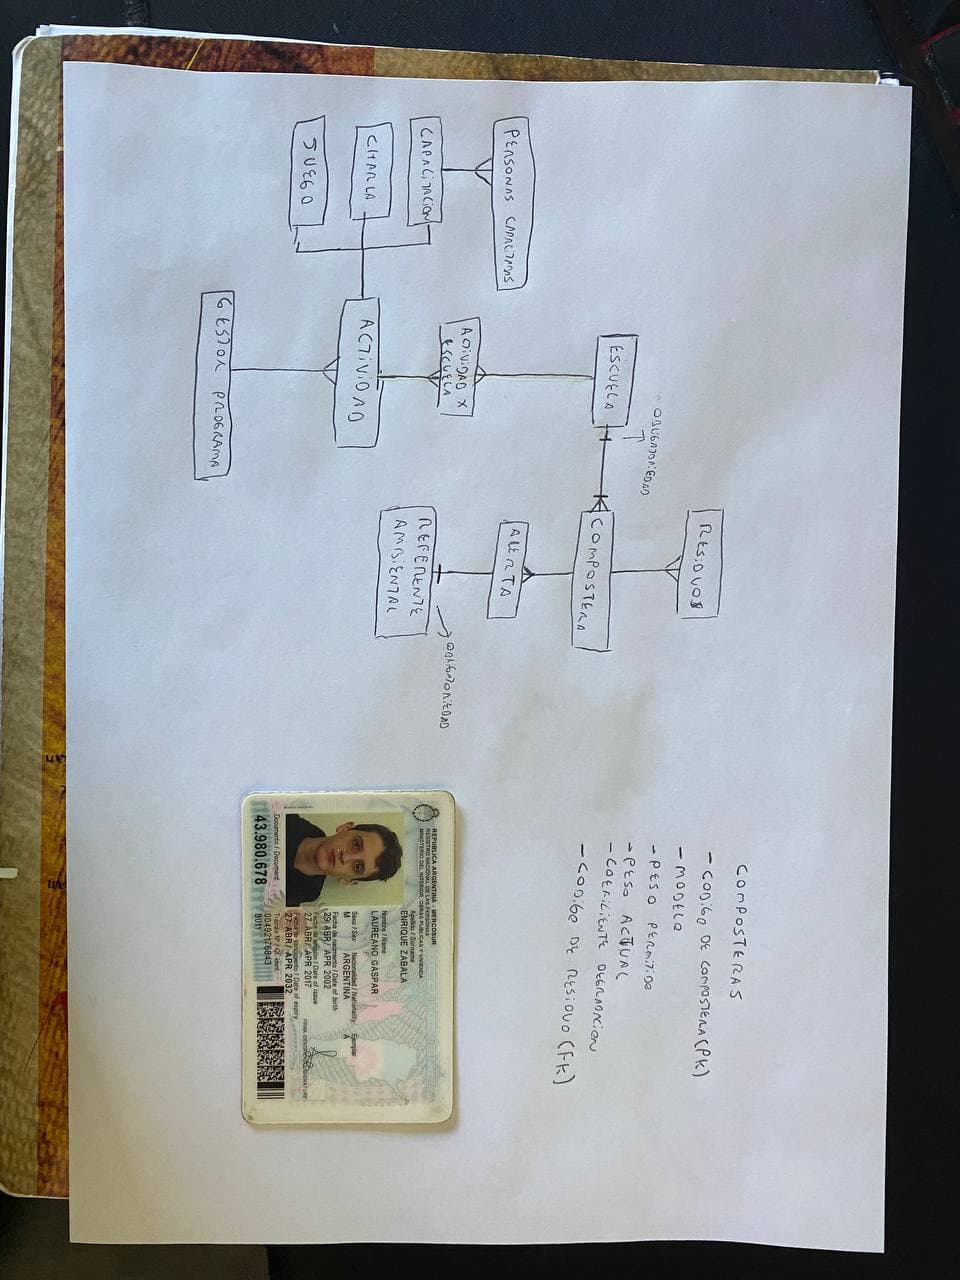 PERSONAS CAPACITADAS
CAPACITACION
CHARLA
JUEGO
ESCUELA
ACTIVIDAD X
ESCUELA
ACTIVIDAD
GESTOR PROGRAMA
OBLIGATORIEDAD
RESIDUOS
COMPOSTERA
ALERTA
REFERENTE
AMBIENTAL
OBLIGATORIEDAD
COMPOSTERAS
- CODIGO DE COMPOSTERA (PK)
- MODELO
- PESO PERMITIDO
- PESO ACTUAL
- COEFICIENTE DEGRADACION
- CODIGO DE RESIDUO (FK)
REPUBLICA ARGENTINA - MERCOSUR
REGISTRO NACIONAL DE LAS PERSONAS
MINISTERIO DEL INTERIOR, OBRAS PUBLICAS Y VIVIENDA
Apellido / Surname
ENRIQUE ZABALA
Nombre / Name
LAUREANO GASPAR
Sexo / Sex Nacionalidad / Nationality Ejemplar
M ARGENTINA A
Fecha de nacimiento / Date of birth
29 ABR/ APR 2002
Fecha de emisión / Date of issue
27 ABR/ APR 2017
Fecha de vencimiento / Date of expiry
27 ABR/ APR 2032
Documento / Document
43.980.678
Trámite Nº / Of. ident.
8011